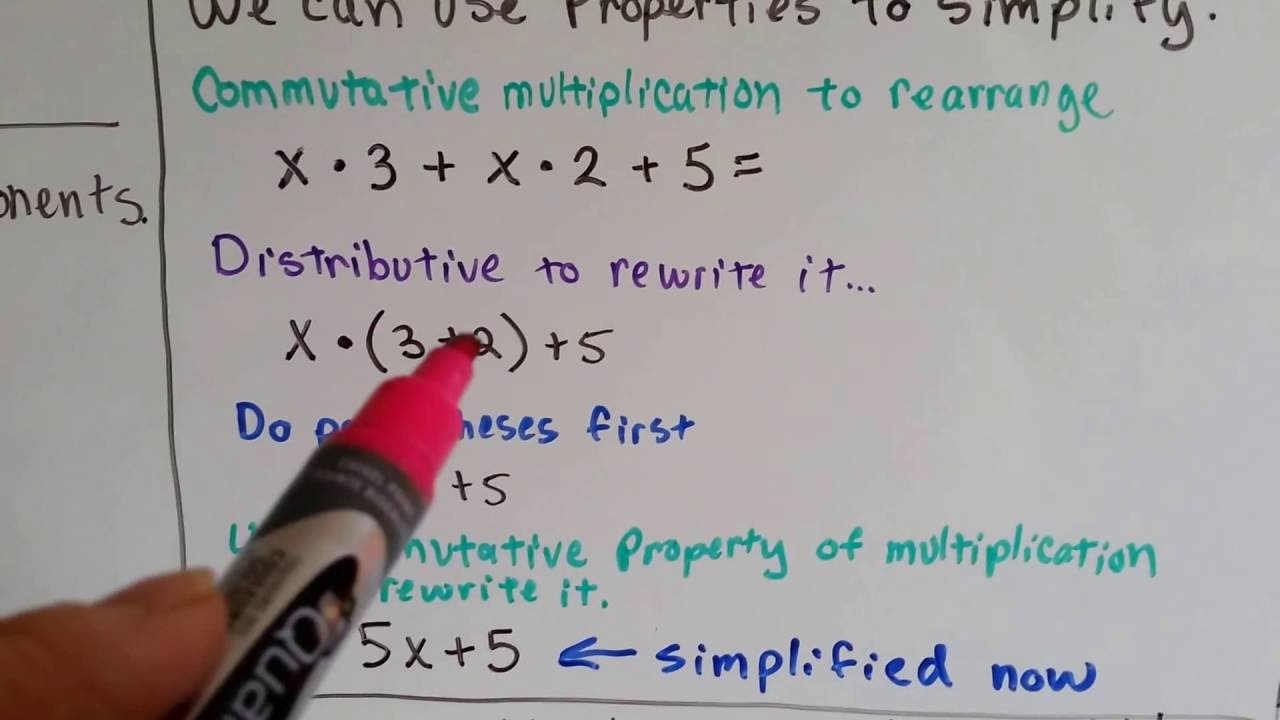 We can use Properties to simplify.
Commutative multiplication to rearrange
x · 3 + x · 2 + 5 =
onents.
Distributive to rewrite it...
x · (3+2) + 5
Do first
+5
Property of multiplication
rewrite it.
5x+5 ← simplified now